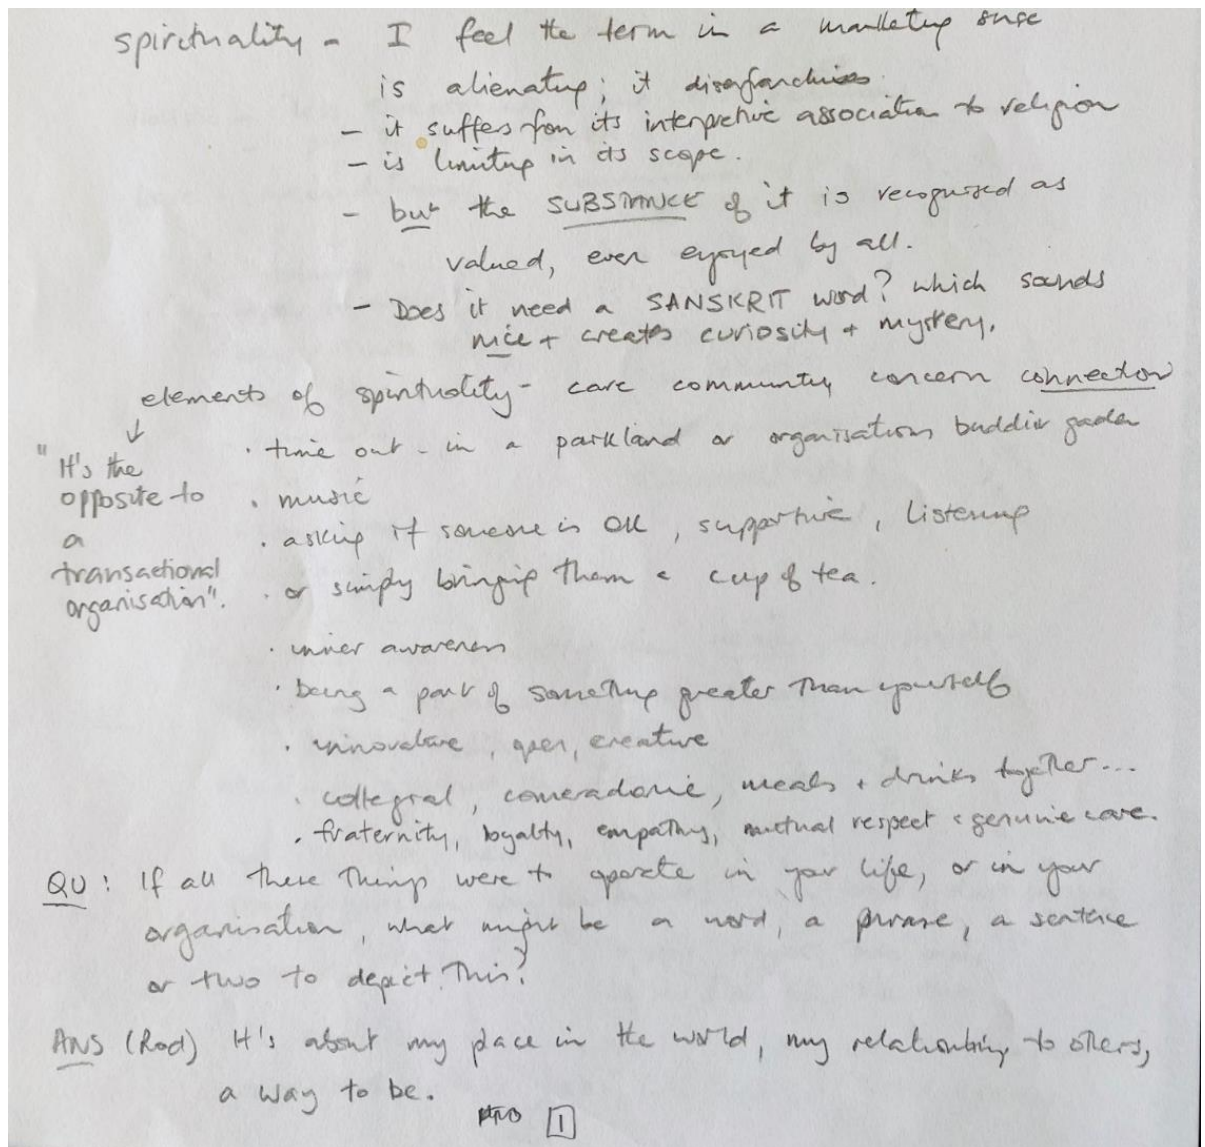 spirituality - I feel the term in a marketing sense
is alienating; it disenfranchises.
- it suffers from its interpretive association to religion
- is limiting in its scope.
- but the SUBSTANCE of it is recognised as
valued, even enjoyed by all.
- Does it need a SANSKRIT word? which sounds
nice + creates curiosity + mystery.
elements of spirituality - care community concern connection
· time out - in a parkland or organisations garden
"It's the
opposite to
a
transactional
organisation".
· music
· asking if someone is OK, supportive, listening
· or simply bringing them a cup of tea.
· inner awareness
· being a part of something greater than yourself
· innovative, open, creative
· collegial, comeraderie, meals + drinks together...
· fraternity, loyalty, empathy, mutual respect & genuine care.
QU: If all these things were to operate in your life, or in your
organisation, what might be a word, a phrase, a sentence
or two to depict this?
ANS (Rod) It's about my place in the world, my relationship to others,
a way to be.
1